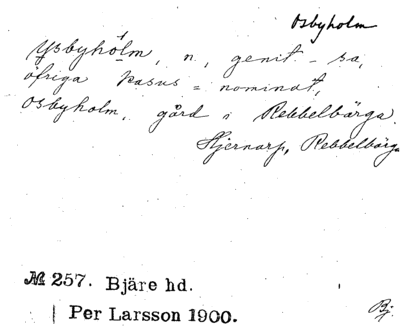 Osbyholm
Ysbyhólm, n, genit - sa,
öfriga kasus = nominat,
Osbyholm, gård i Rebbelbärga.
Hjernarp, Rebbelbärga
№ 257. Bjäre hd.
Per Larsson 1900.
Bj.